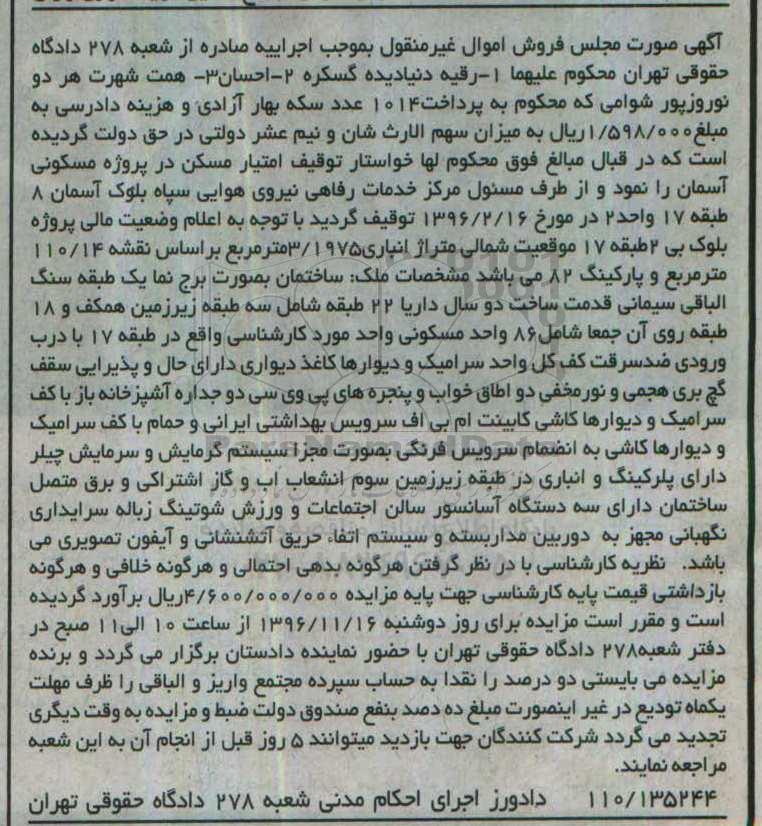 آگهی صورت مجلس فروش اموال غیرمنقول بموجب اجراییه صادره از شعبه ۲۷۸ دادگاه
حقوقی تهران محکوم علیهما ۱-رقیه دنیادیده گسکره ۲-احسان۳- همت شهرت هر دو
نوروزپور شوامی که محکوم به پرداخت۱۰۱۴ عدد سکه بهار آزادی و هزینه دادرسی به
مبلغ۱/۵۹۸/۰۰۰ریال به میزان سهم الارث شان و نیم عشر دولتی در حق دولت گردیده
است که در قبال مبالغ فوق محکوم لها خواستار توقیف امتیاز مسکن در پروژه مسکونی
آسمان را نمود و از طرف مسئول مرکز خدمات رفاهی نیروی هوایی سپاه بلوک آسمان ۸
طبقه ۱۷ واحد۲ در مورخ ۱۳۹۶/۲/۱۶ توقیف گردید با توجه به اعلام وضعیت مالی پروژه
بلوک بی ۲طبقه ۱۷ موقعیت شمالی متراژ انباری۳/۱۹۷۵مترمربع براساس نقشه ۱۱۰/۱۴
مترمربع و پارکینگ ۸۲ می باشد مشخصات ملک: ساختمان بصورت برج نما یک طبقه سنگ
الباقی سیمانی قدمت ساخت دو سال داریا ۲۲ طبقه شامل سه طبقه زیرزمین همکف و ۱۸
طبقه روی آن جمعا شامل۸۶ واحد مسکونی واحد مورد کارشناسی واقع در طبقه ۱۷ با درب
ورودی ضدسرقت کف کل واحد سرامیک و دیوارها کاغذ دیواری دارای حال و پذیرایی سقف
گچ بری هجمی و نورمخفی دو اطاق خواب و پنجره های پی وی سی دو جداره آشپزخانه باز با کف
سرامیک و دیوارها کاشی کابینت ام بی اف سرویس بهداشتی ایرانی و حمام با کف سرامیک
و دیوارها کاشی به انضمام سرویس فرنگی بصورت مجزا سیستم گرمایش و سرمایش چیلر
دارای پلرکینگ و انباری در طبقه زیرزمین سوم انشعاب اب و گاز اشتراکی و برق متصل
ساختمان دارای سه دستگاه آسانسور سالن اجتماعات و ورزش شوتینگ زباله سرایداری
نگهبانی مجهز به دوربین مداربسته و سیستم اتفاء حریق آتشنشانی و آیفون تصویری می
باشد. نظریه کارشناسی با در نظر گرفتن هرگونه بدهی احتمالی و هرگونه خلافی و هرگونه
بازداشتی قیمت پایه کارشناسی جهت پایه مزایده ۴/۶۰۰/۰۰۰/۰۰۰ریال برآورد گردیده
است و مقرر است مزایده برای روز دوشنبه ۱۳۹۶/۱۱/۱۶ از ساعت ۱۰ الی۱۱ صبح در
دفتر شعبه۲۷۸ دادگاه حقوقی تهران با حضور نماینده دادستان برگزار می گردد و برنده
مزایده می بایستی دو درصد را نقدا به حساب سپرده مجتمع واریز و الباقی را ظرف مهلت
یکماه تودیع در غیر اینصورت مبلغ ده دصد بنفع صندوق دولت ضبط و مزایده به وقت دیگری
تجدید می گردد شرکت کنندگان جهت بازدید میتوانند ۵ روز قبل از انجام آن به این شعبه
مراجعه نمایند.
۱۱۰/۱۳۵۲۴۴ دادورز اجرای احکام مدنی شعبه ۲۷۸ دادگاه حقوقی تهران
ParsNamadData